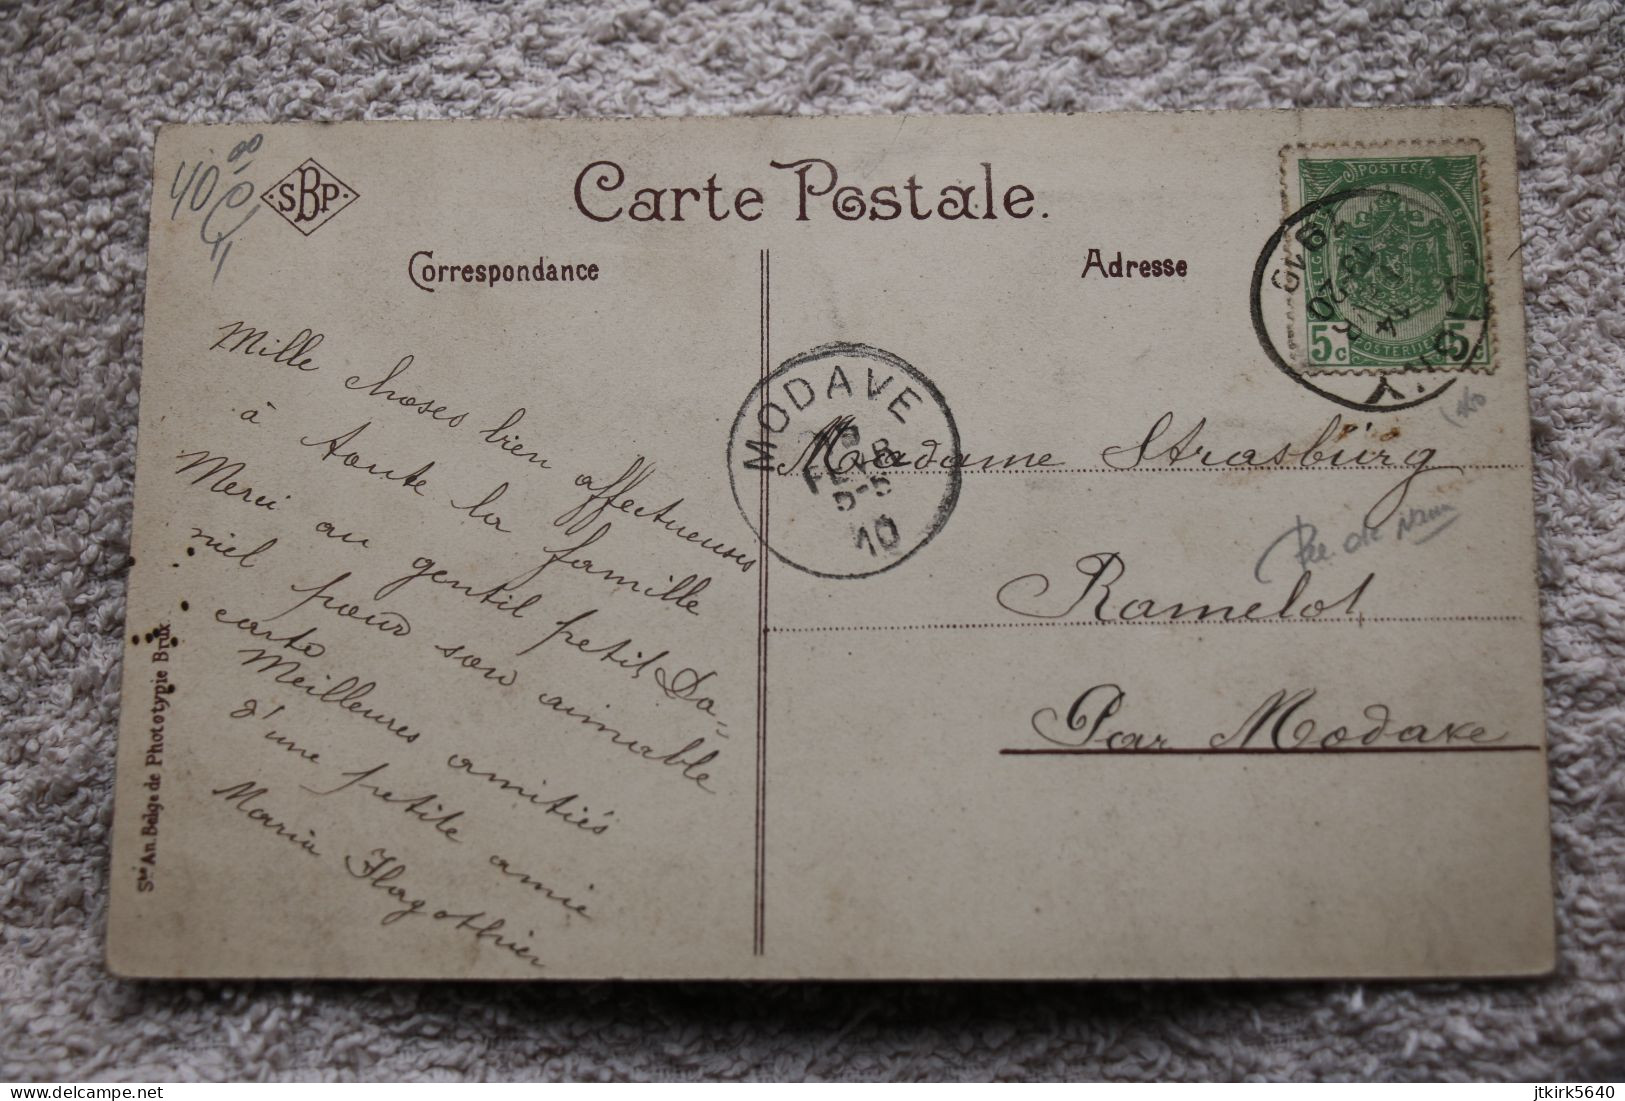 40
SBP
Carte Postale.
Correspondance
Adresse
POSTES
BELGIQUE
5c 5c
POSTERIJEN
1910
MODAVE
5
FEVR
5-5
10
Mille choses bien affectueuses
à toute la famille
Merci au gentil petit Da-
niel pour son aimable
carte
Meilleures amitiés
d'une petite amie
Maria Flagothier
Madame Strasbürg
Ramelot
Par Modave
Sté An. Belge de Phototypie Brux
delcampe.net
jtkirk5640